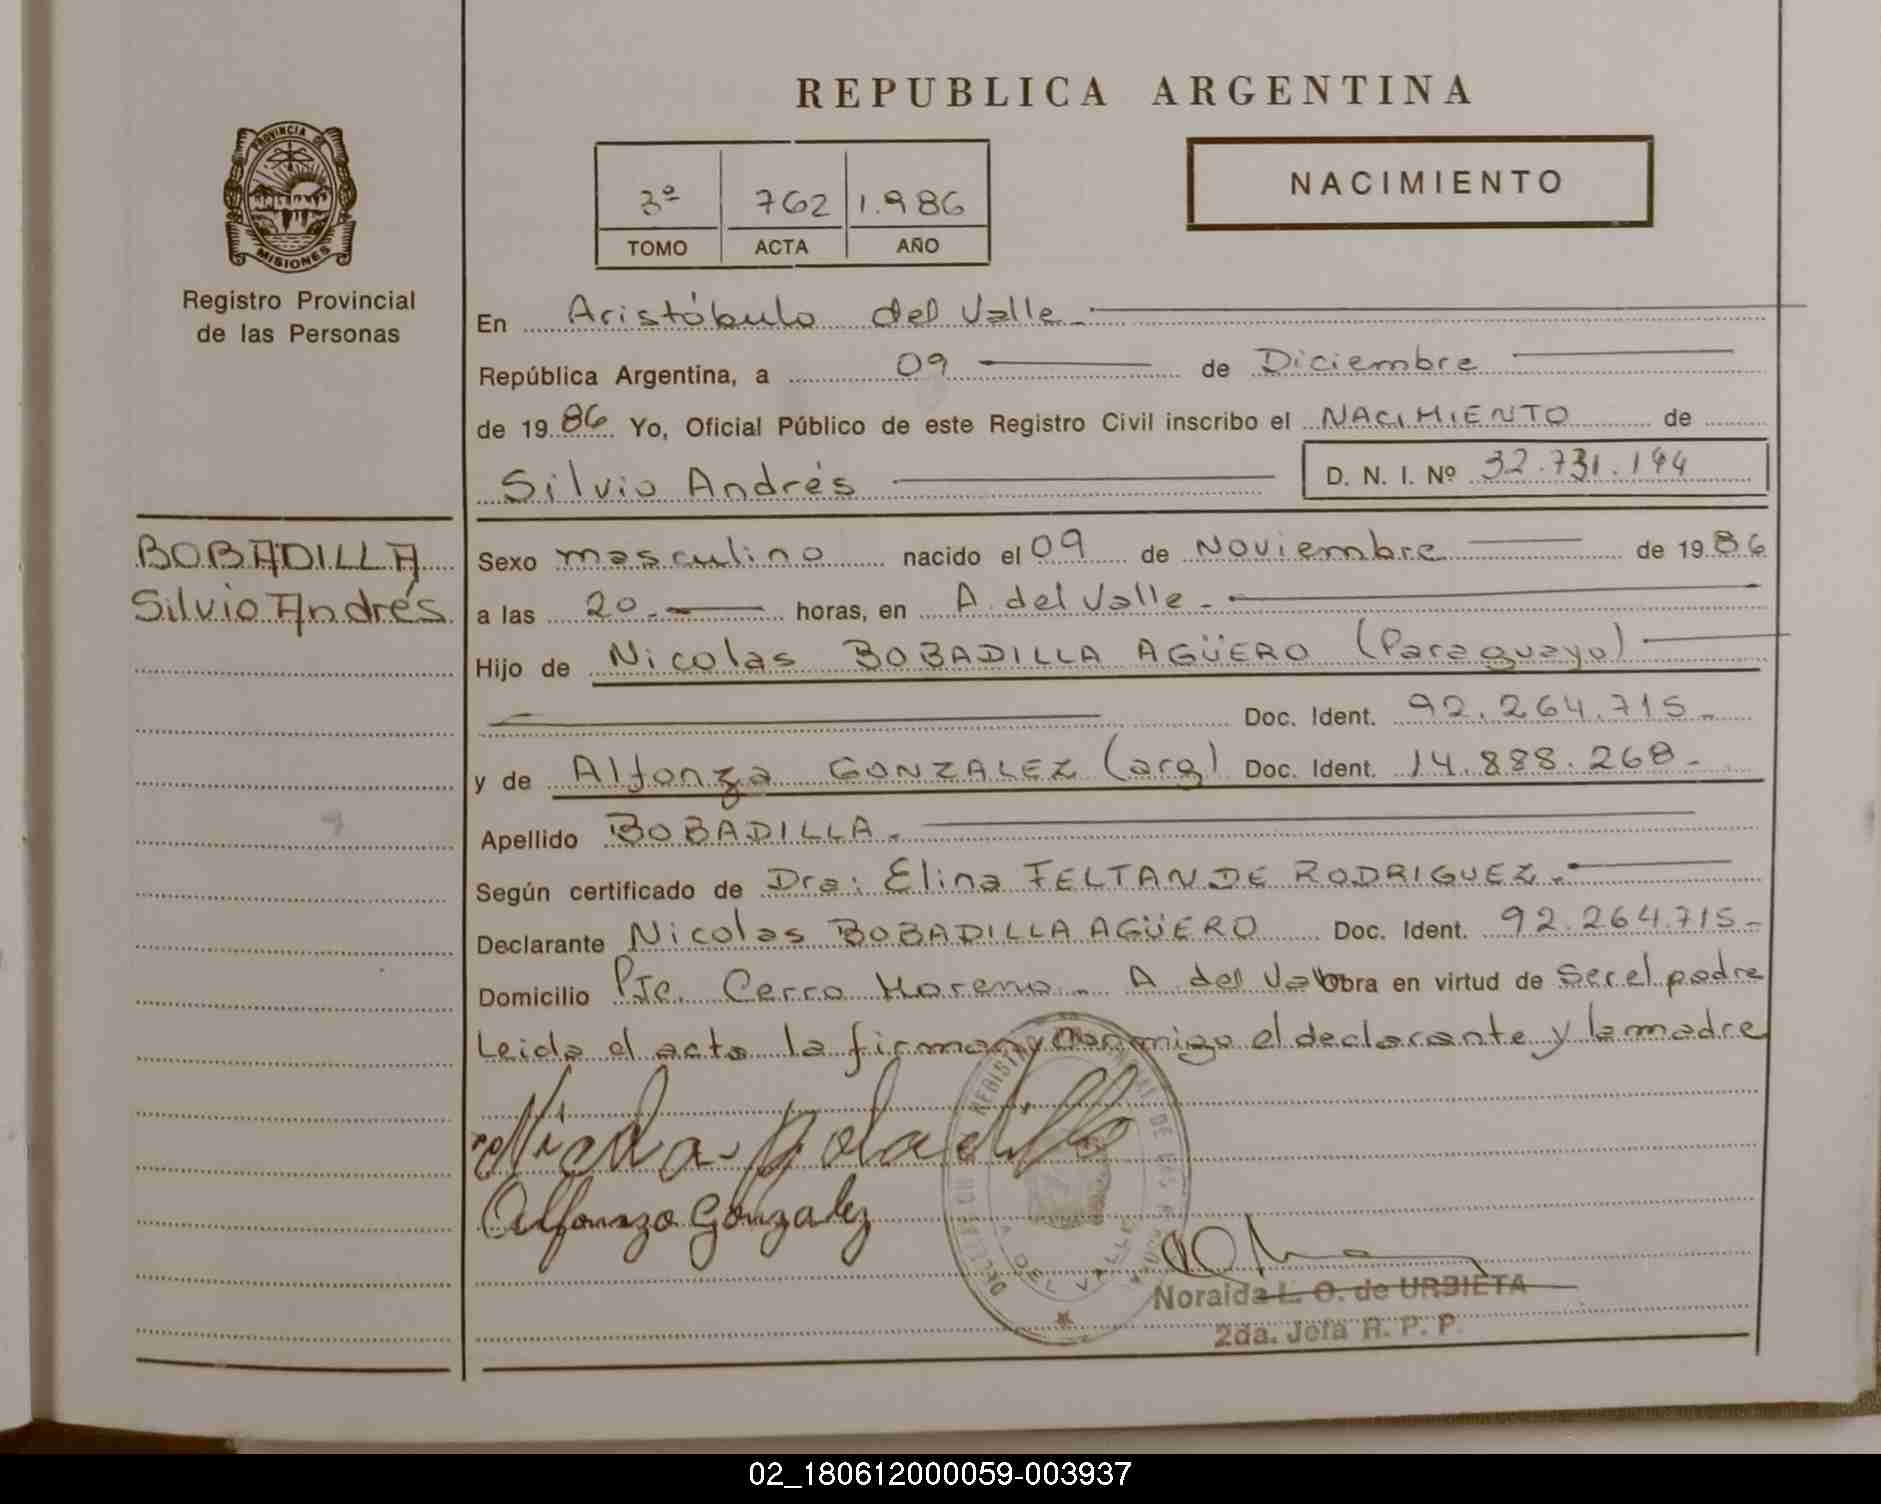 REPUBLICA ARGENTINA
PROVINCIA DE
MISIONES
Registro Provincial
de las Personas
3º 762 1.986
TOMO ACTA AÑO
NACIMIENTO
En Aristóbulo del Valle.
República Argentina, a 09 de Diciembre
de 19 86 Yo, Oficial Público de este Registro Civil inscribo el NACIMIENTO de
Silvio Andrés D. N. I. Nº 32.731.194
BOBADILLA
Silvio Andrés
Sexo masculino nacido el 09 de Noviembre de 19 86
a las 20.- horas, en A. del Valle.-
Hijo de Nicolas BOBADILLA AGÜERO (Paraguayo)
Doc. Ident. 92.264.715.-
y de Alfonza GONZALEZ (arg) Doc. Ident. 14.888.268.-
Apellido BOBADILLA.-
Según certificado de Dra: Elina FELTAN DE RODRIGUEZ.-
Declarante Nicolas BOBADILLA AGÜERO Doc. Ident. 92.264.715-
Domicilio Pje. Cerro Moreno.- A del Va Obra en virtud de ser el padre
Leida el acta la firman conmigo el declarante y la madre
Alfonzo Gonzalez
A DEL VALLE
Noraida L. O. de URBIETA
2da. Jefa R. P. P.
02_180612000059-003937